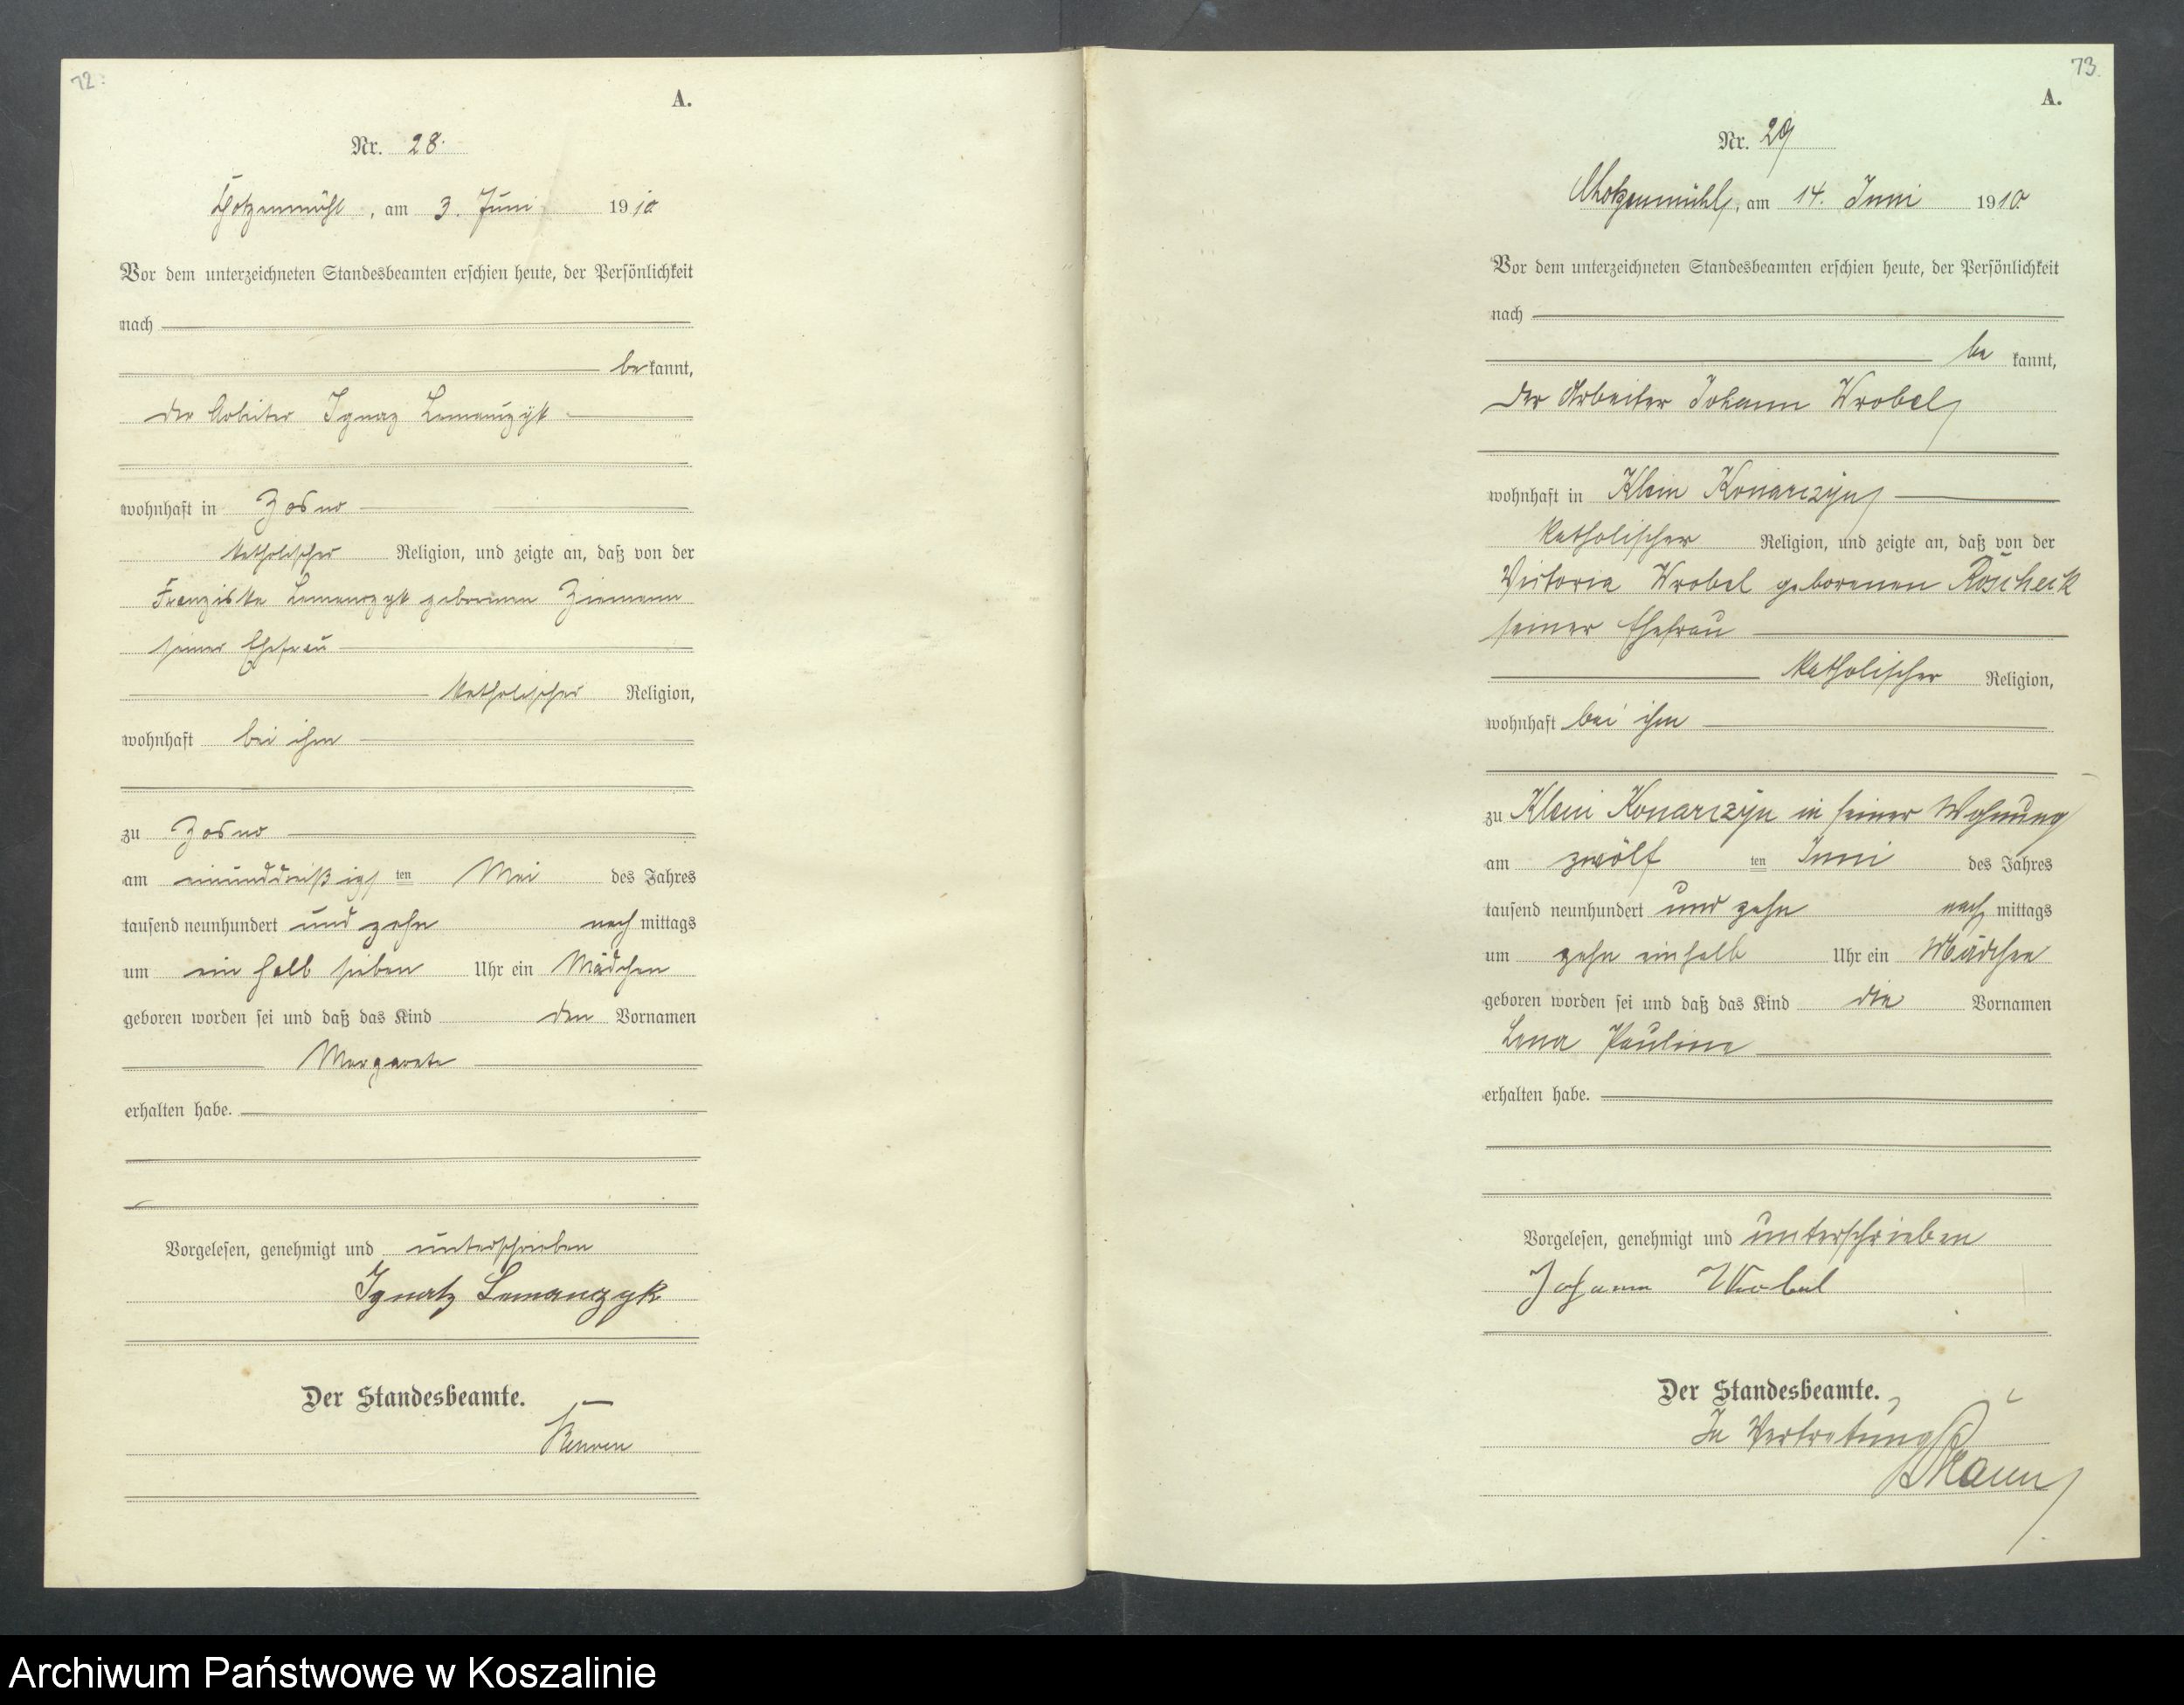 72.
A.
Nr. 28.
Chotzenmühl, am 3. Juni 1910
Vor dem unterzeichneten Standesbeamten erschien heute, der Persönlichkeit
nach
be kannt,
der Arbeiter Ignaz Lemanczyk
wohnhaft in
katholischer Religion, und zeigte an, daß von der
Franziska Lemanczyk geborenen Ziemann
seiner Ehefrau
katholischer Religion,
wohnhaft bei ihm
zu
am einunddreißigsten ten Mai des Jahres
tausend neunhundert und zehn nach mittags
um ein halb sieben Uhr ein Mädchen
geboren worden sei und daß das Kind den Vornamen
Margarete
erhalten habe.
Vorgelesen, genehmigt und unterschrieben
Ignatz Lemanczyk
Der Standesbeamte.
73.
A.
Nr. 29
Chotzenmühl, am 14. Juni 1910
Vor dem unterzeichneten Standesbeamten erschien heute, der Persönlichkeit
nach
be kannt,
der Arbeiter Johann Wrobel
wohnhaft in Klein Konarczyn
katholischer Religion, und zeigte an, daß von der
Victoria Wrobel geborenen Roscheck
seiner Ehefrau
katholischer Religion,
wohnhaft bei ihm
zu Klein Konarczyn in seiner Wohnung
am zwölf ten Juni des Jahres
tausend neunhundert und zehn nach mittags
um zehn einhalb Uhr ein Mädchen
geboren worden sei und daß das Kind die Vornamen
Lena Pauline
erhalten habe.
Vorgelesen, genehmigt und unterschrieben
Johann Wrobel
Der Standesbeamte.
In Vertretung
Archiwum Państwowe w Koszalinie